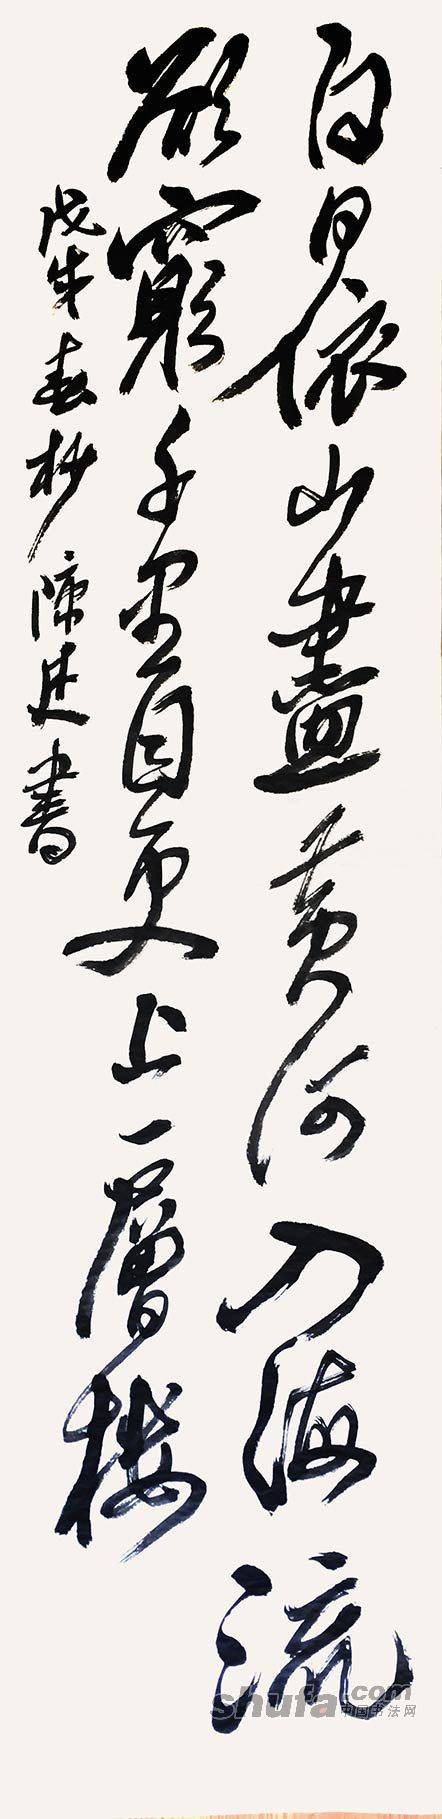 白日依山盡黃河入海流
欲窮千里目更上一層樓
戊戌春杪 陳 書
shufa.com
中国书法网